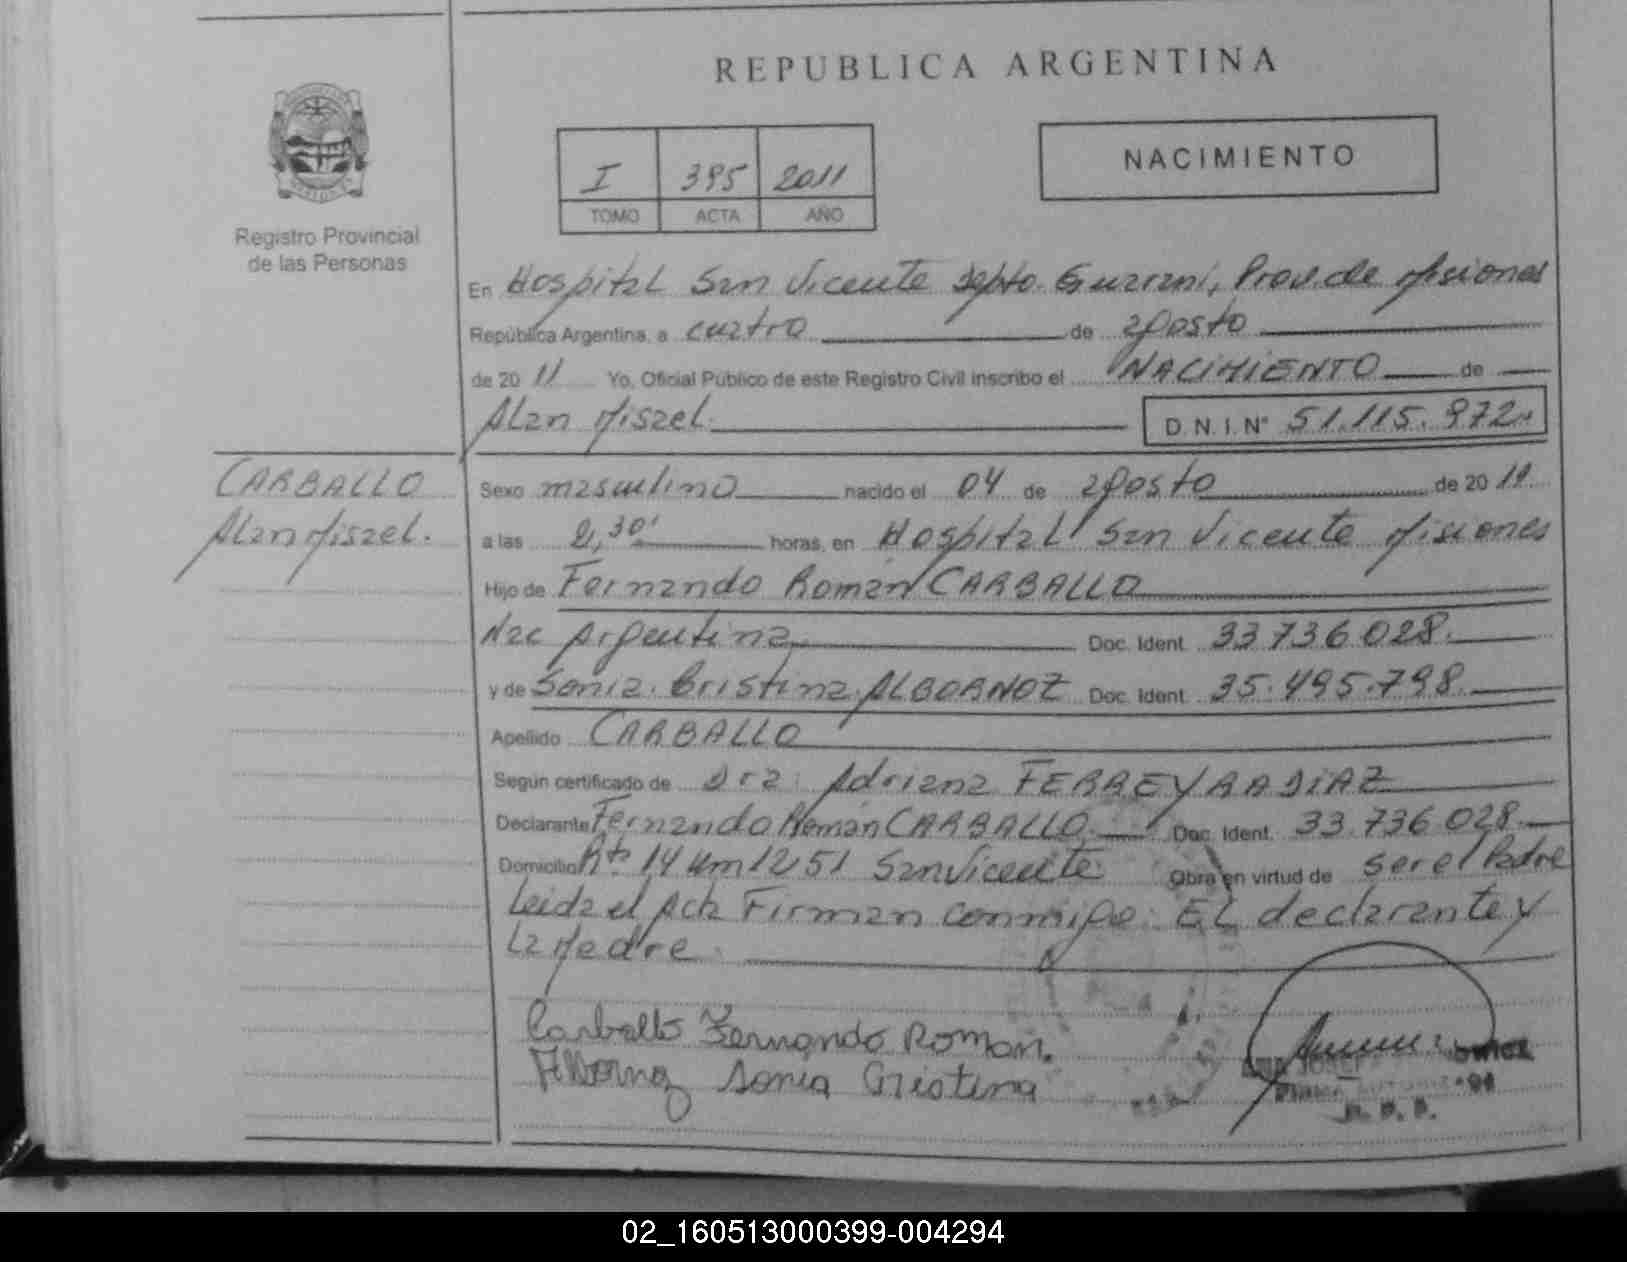 REPUBLICA ARGENTINA
NACIMIENTO
I 395 2011
TOMO ACTA AÑO
Registro Provincial
de las Personas
En Hospital San Vicente Depto. Guarani, Prov. de Misiones
República Argentina, a cuatro de agosto
de 2011 Yo, Oficial Público de este Registro Civil inscribo el NACIMIENTO de
Alan Misael. D. N. I. N° 51.115.972.
CARBALLO
Alan Misael.
Sexo masculino nacido el 04 de agosto de 2011
a las 2,30' horas, en Hospital San Vicente Misiones
Hijo de Fernando Román CARBALLO
Nac Argentina Doc. Ident. 33.736.028.
y de Sonia Cristina ALBORNOZ Doc. Ident. 35.495.798
Apellido CARBALLO
Según certificado de Dra: Adriana FERREYRA DIAZ
Declarante Fernando Román CARBALLO Doc. Ident. 33.736.028
Domicilio Rta. 14 Km 1251 San Vicente Obra en virtud de ser el Padre
Leida el Acta Firman conmigo: EL declarante y
La Madre.
Carballo Fernando Roman.
Albornoz Sonia Cristina
02_160513000399-004294